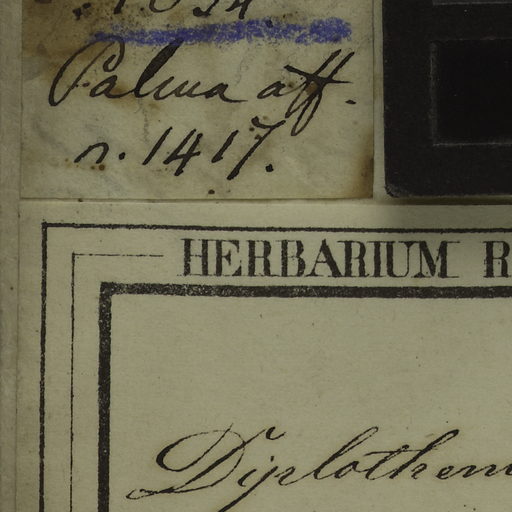 Palma aff.
n. 1417.
HERBARIUM R
Diplothem